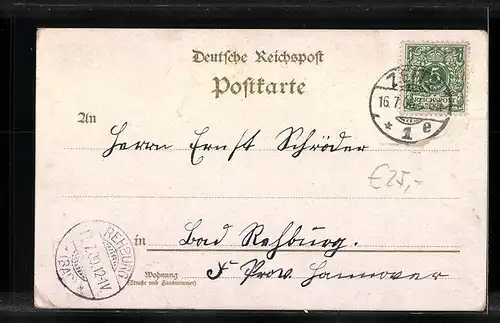 Deutsche Reichspost
Postkarte
An
Herrn Ernst Schröder
REICHSPOST
16.7.
* 1 e
€25,-
REHBURG
in Bad Rehburg.
Wohnung
(Straße und Hausnummer)
Prov. Hannover